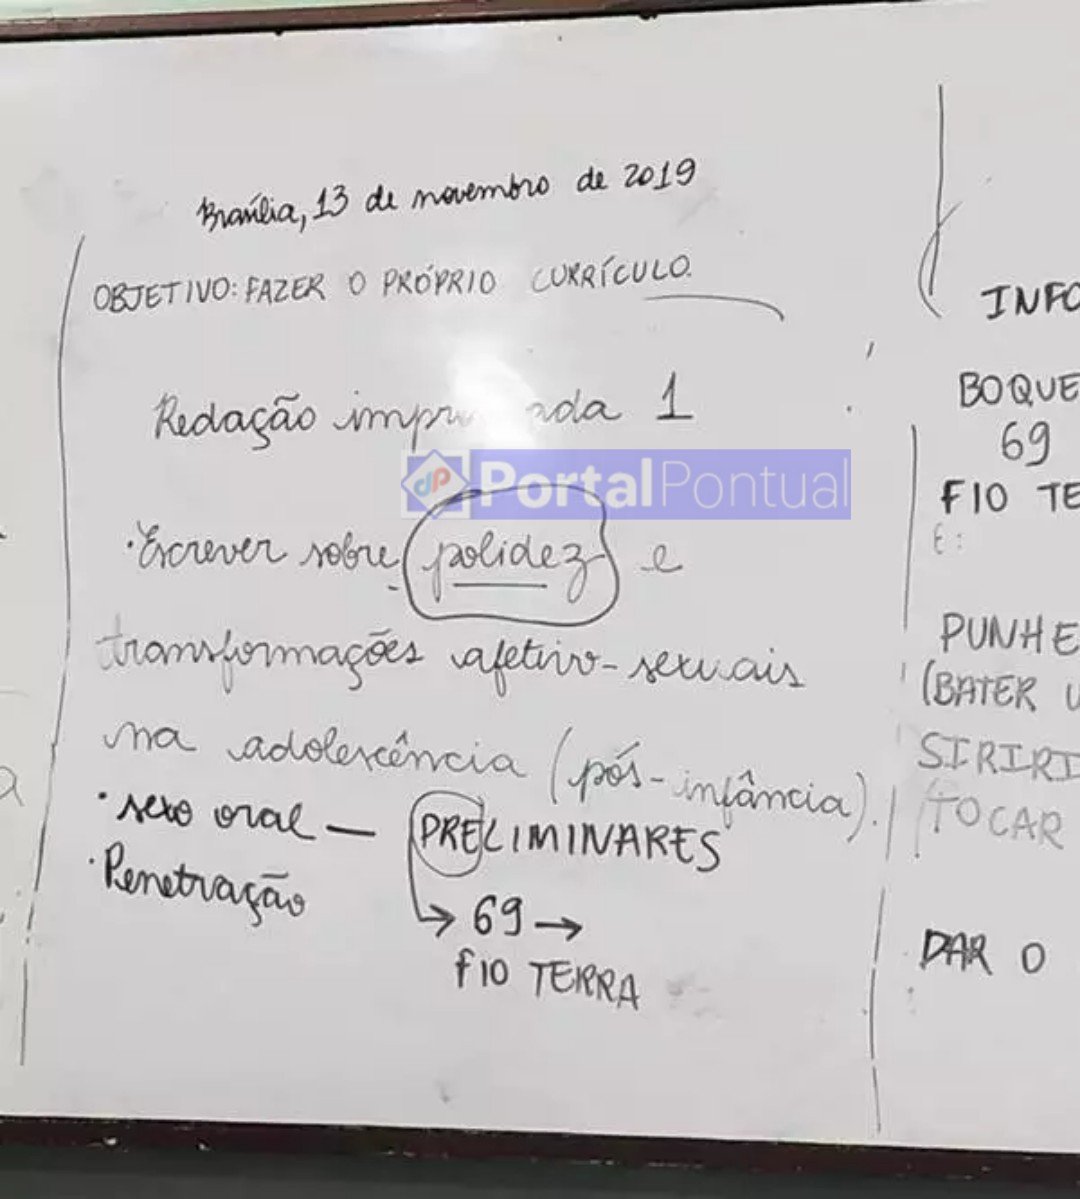 Brasília, 13 de novembro de 2019
OBJETIVO: FAZER O PRÓPRIO CURRÍCULO.
Redação 1
PortalPontual
• Escrever sobre polidez e
transformações afetivo-sexuais
na adolescência (pós-infância).
• sexo oral — PRELIMINARES
• Penetração
→ 69 →
FIO TERRA
INFO
BOQUE
69
FIO TE
E:
PUNHE
(BATER U
SIRIRI
(TOCAR
DAR O